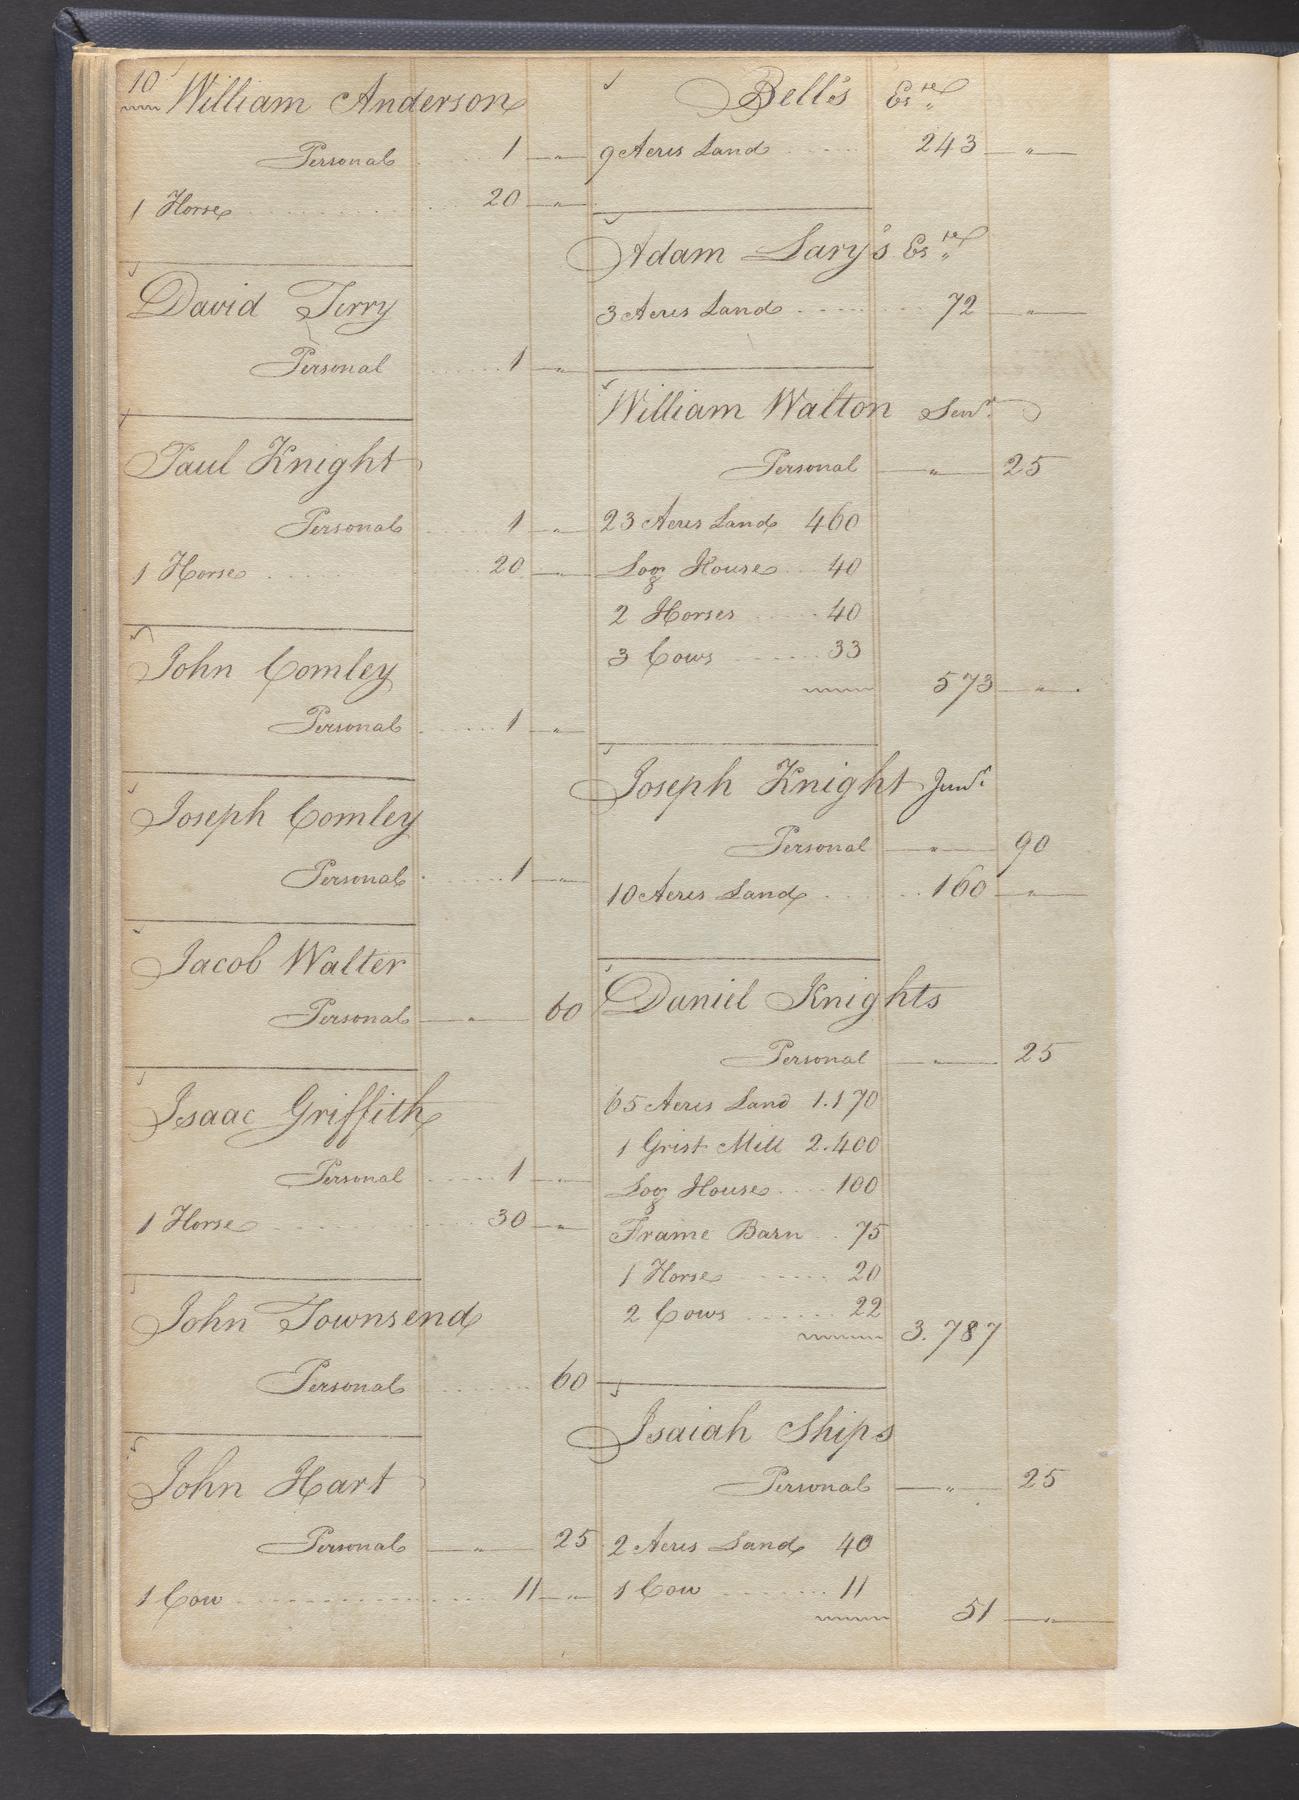 10
William Anderson
Personal 1 "
1 Horse 20 "
David Terry
Personal 1 "
Paul Knight
Personal 1 "
1 Horse 20 "
John Comley
Personal 1 "
Joseph Comley
Personal 1 "
Jacob Walter
Personal " 60
Isaac Griffith
Personal 1 "
1 Horse 30 "
John Townsend
Personal 60
John Hart
Personal " 25
1 Cow 11 "
Bell's Es.te
9 Acres Land 243 "
Adam Lary's Es.te
3 Acres Land 72 "
William Walton Senr.
Personal " 25
23 Acres Land 460
Log House 40
2 Horses 40
3 Cows 33
573 "
Joseph Knight Junr.
Personal " 90
10 Acres Land 160 "
Daniel Knights
Personal " 25
65 Acres Land 1.170
1 Grist Mill 2.400
Log House 100
Frame Barn 75
1 Horse 20
2 Cows 22
3.787
Isaiah Ships
Personal " 25
2 Acres Land 40
1 Cow 11
51 "